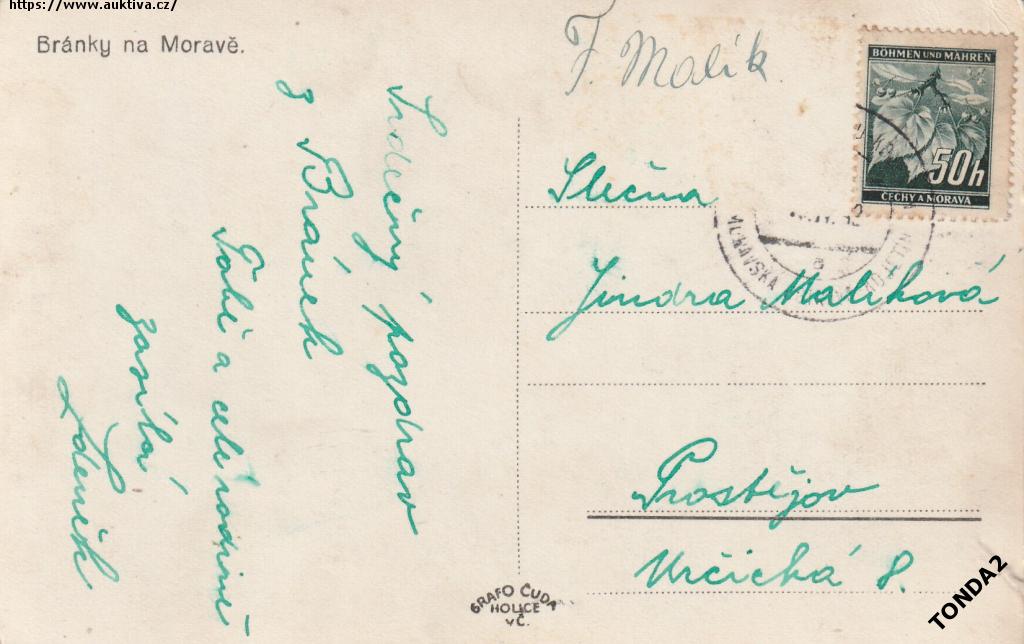 https://www.auktiva.cz/
Bránky na Moravě.
F. Malík.
BÖHMEN UND MÄHREN
50h
ČECHY A MORAVA
Srdečný pozdrav
z Bránek
Tobě a celé rodině
zasílá
Zdeněk
Slečna
Jindra Malíková
Prostějov
Určická 8.
MORAVSKÁ
GRAFO ČUDA
HOLICE
v Č.
TONDA2